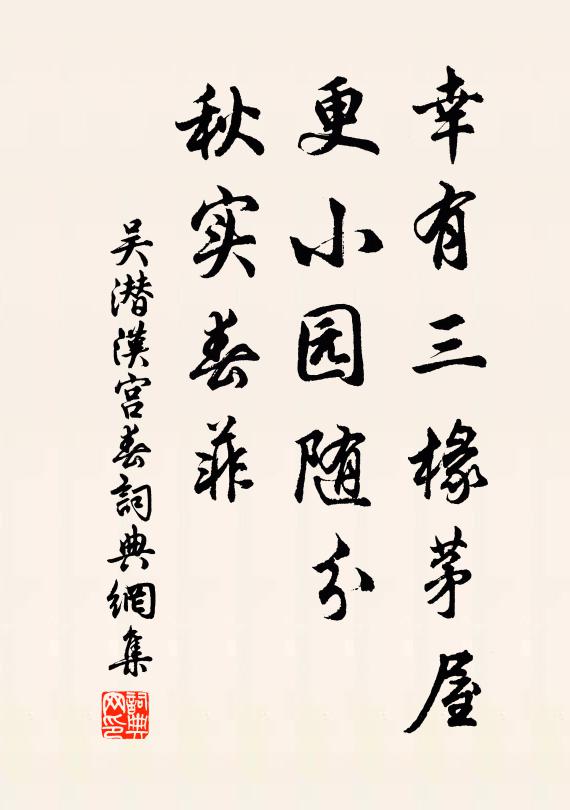 幸有三椽茅屋
更小园随分
秋实春菲
吴潜漢宫春詞典網集
詞典网印